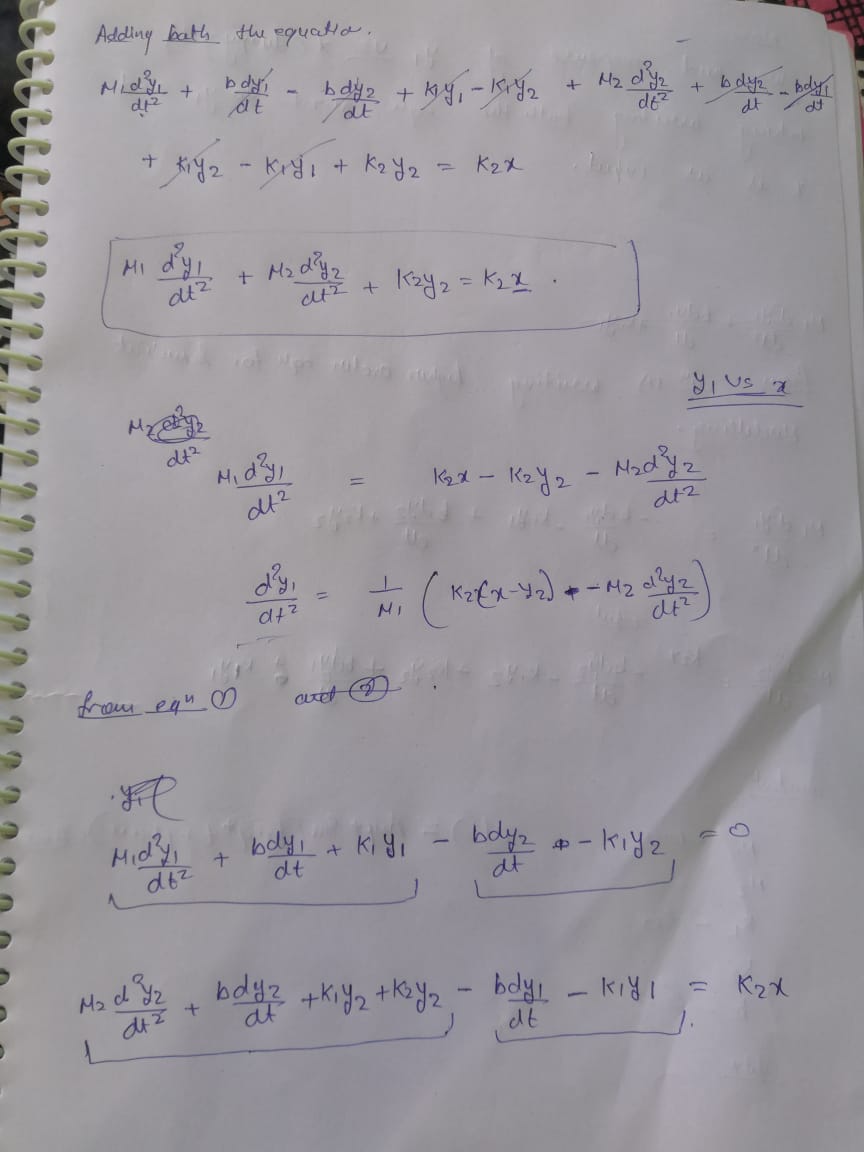 Adding both the equation.
M1 d²y1/dt² + b dy1/dt - b dy2/dt + K1y1 - K1y2 + M2 d²y2/dt² + b dy2/dt - b dy1/dt
+ K1y2 - K1y1 + K2y2 = K2x
M1 d²y1/dt² + M2 d²y2/dt² + K2y2 = K2x .
y1 vs x
M2 d²y2/dt²
M1 d²y1/dt² = K2x - K2y2 - M2 d²y2/dt²
d²y1/dt² = 1/M1 ( K2(x-y2) - M2 d²y2/dt² )
from eqn ① and ② .
M1 d²y1/dt² + b dy1/dt + K1y1 - b dy2/dt - K1y2 = 0
M2 d²y2/dt² + b dy2/dt + K1y2 + K2y2 - b dy1/dt - K1y1 = K2x